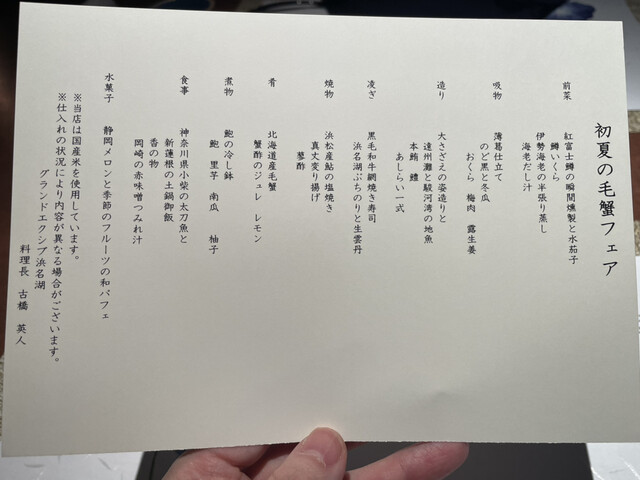 初夏の毛蟹フェア
前菜
紅富士鱒の瞬間燻製と水茄子
鱒いくら
伊勢海老の半張り蒸し
海老だし汁
吸物
薄葛仕立て
のど黒と冬瓜
おくら 梅肉 露生姜
造り
大さざえの姿造りと
遠州灘と駿河湾の地魚
本鮪 鱧
あしらい一式
凌ぎ
黒毛和牛網焼き寿司
浜名湖ぶちのりと生雲丹
焼物
浜松産鮎の塩焼き
真丈変り揚げ
蓼酢
肴
北海道産毛蟹
蟹酢のジュレ レモン
煮物
鮑の冷し鉢
鮑 里芋 南瓜 柚子
食事
神奈川県小柴の太刀魚と
新蓮根の土鍋御飯
香の物
岡崎の赤味噌つみれ汁
水菓子
静岡メロンと季節のフルーツの和パフェ
※当店は国産米を使用しています。
※仕入れの状況により内容が異なる場合がございます。
グランドエクシブ浜名湖
料理長 古橋 英人